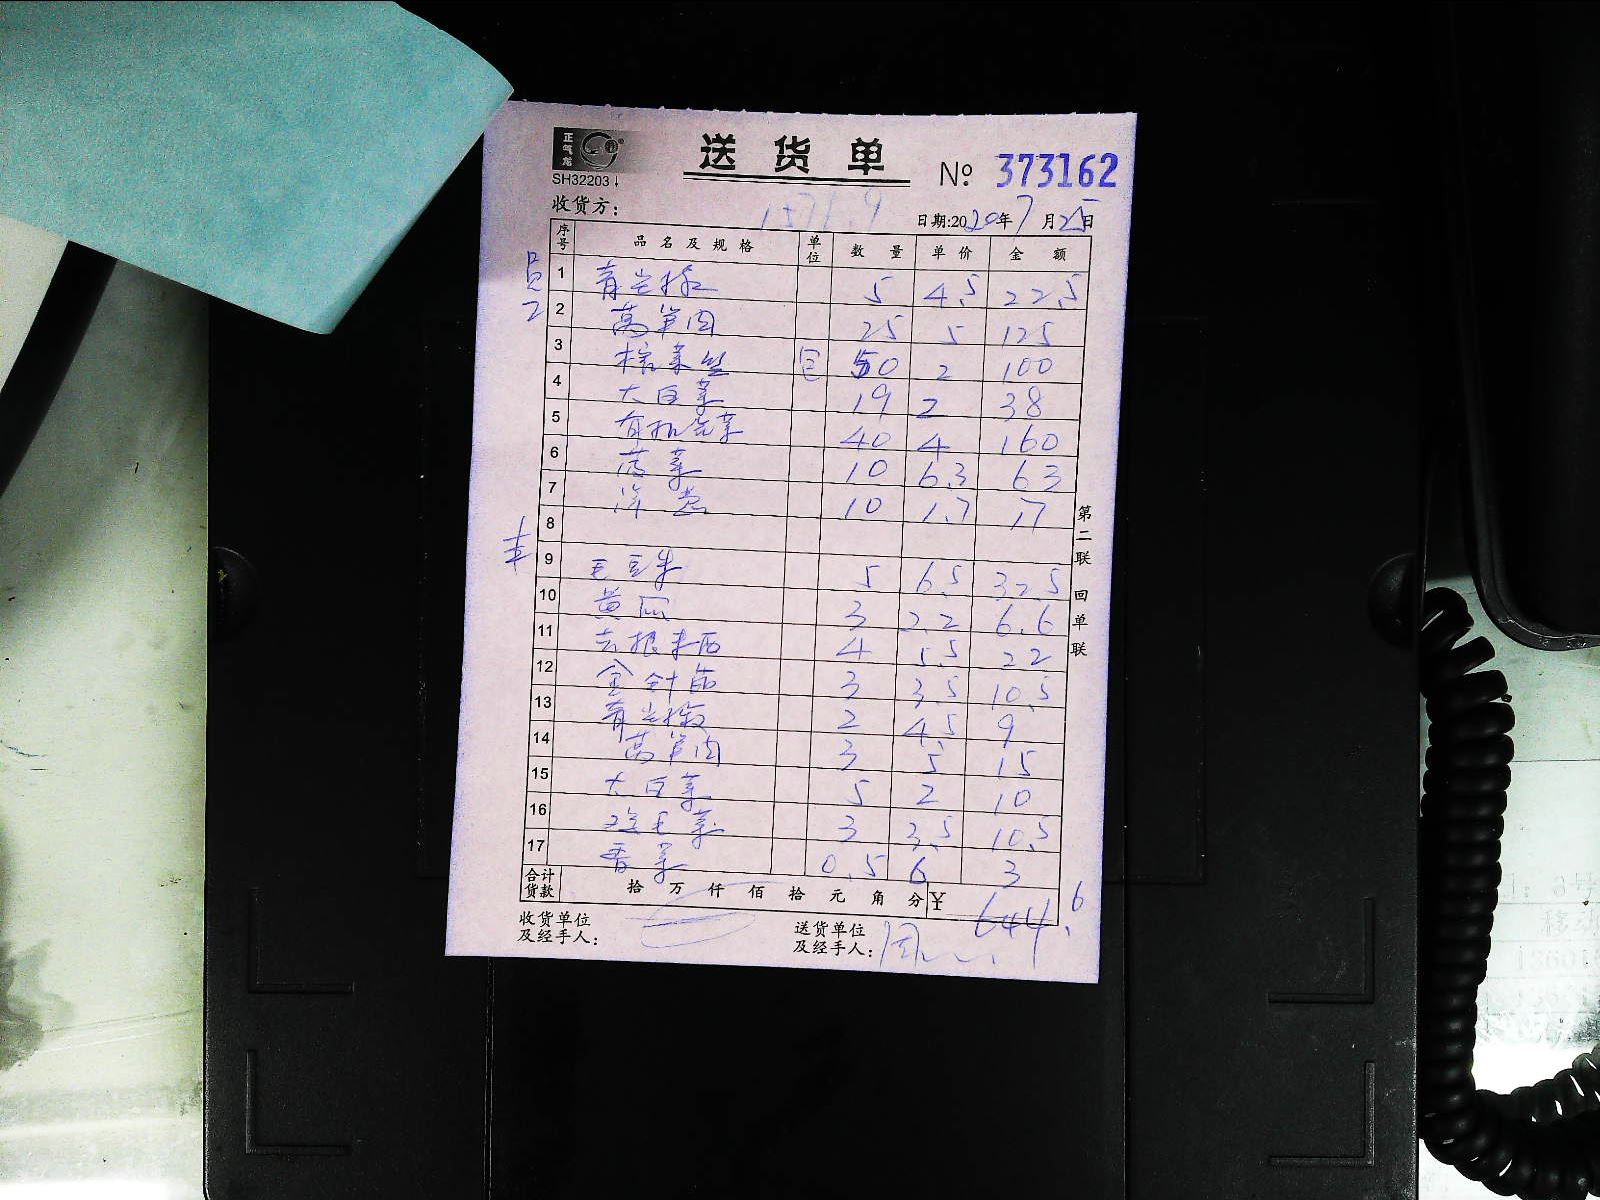 正气龙
SH32203
送货单
№ 373162
收货方: 1571.9
日期:2020年7月25日
序号 品名及规格 单位 数量 单价 金额
员工
1 青尖椒 5 4.5 22.5
2 莴笋肉 25 5 125
3 榨菜丝 包 50 2 100
4 大白菜 19 2 38
5 有机花菜 40 4 160
6 芹菜 10 6.3 63
7 洋葱 10 1.7 17
8
9 毛豆米 5 6.5 32.5
10 黄瓜 3 2.2 6.6
11 4 5.5 22
12 金针菇 3 3.5 10.5
13 青尖椒 2 4.5 9
14 莴笋肉 3 5 15
15 大白菜 5 2 10
16 鸡毛菜 3 3.5 10.5
17 香菜 0.5 6 3
合计货款 拾 万 仟 佰 拾 元 角 分 ¥ 644.6
收货单位及经手人:
送货单位及经手人: 周
第二联 回单联